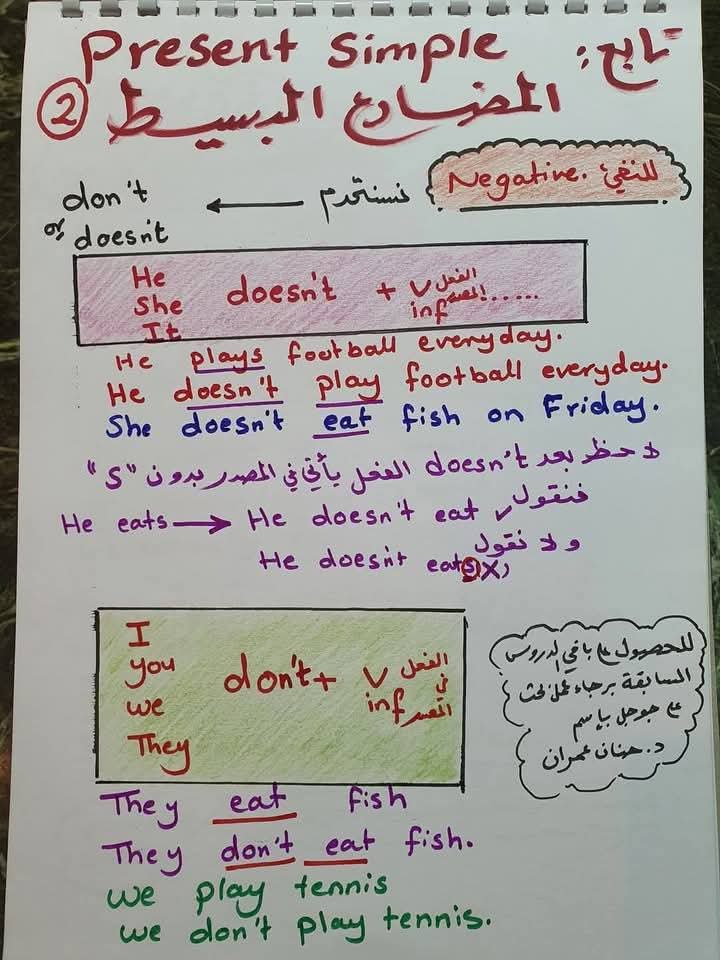 Present Simple تابع:
المضارع البسيط ②
للنفي Negative. نستخدم ←
don't
or doesn't
He
She
It
doesn't + V inf الفعل المصدر......
He plays football everyday.
He doesn't play football everyday.
She doesn't eat fish on Friday.
لاحظ بعد doesn't الفعل يأتي في المصدر بدون "S"
فنقول
He eats → He doesn't eat ✓
ولا نقول
He doesn't eats X
I
you
we
They
don't + V inf الفعل في المصدر
للحصول على باقي الدروس
السابقة برجاء عمل بحث
على جوجل بإسم
د. حنان عمران
They eat fish
They don't eat fish.
we play tennis
we don't play tennis.